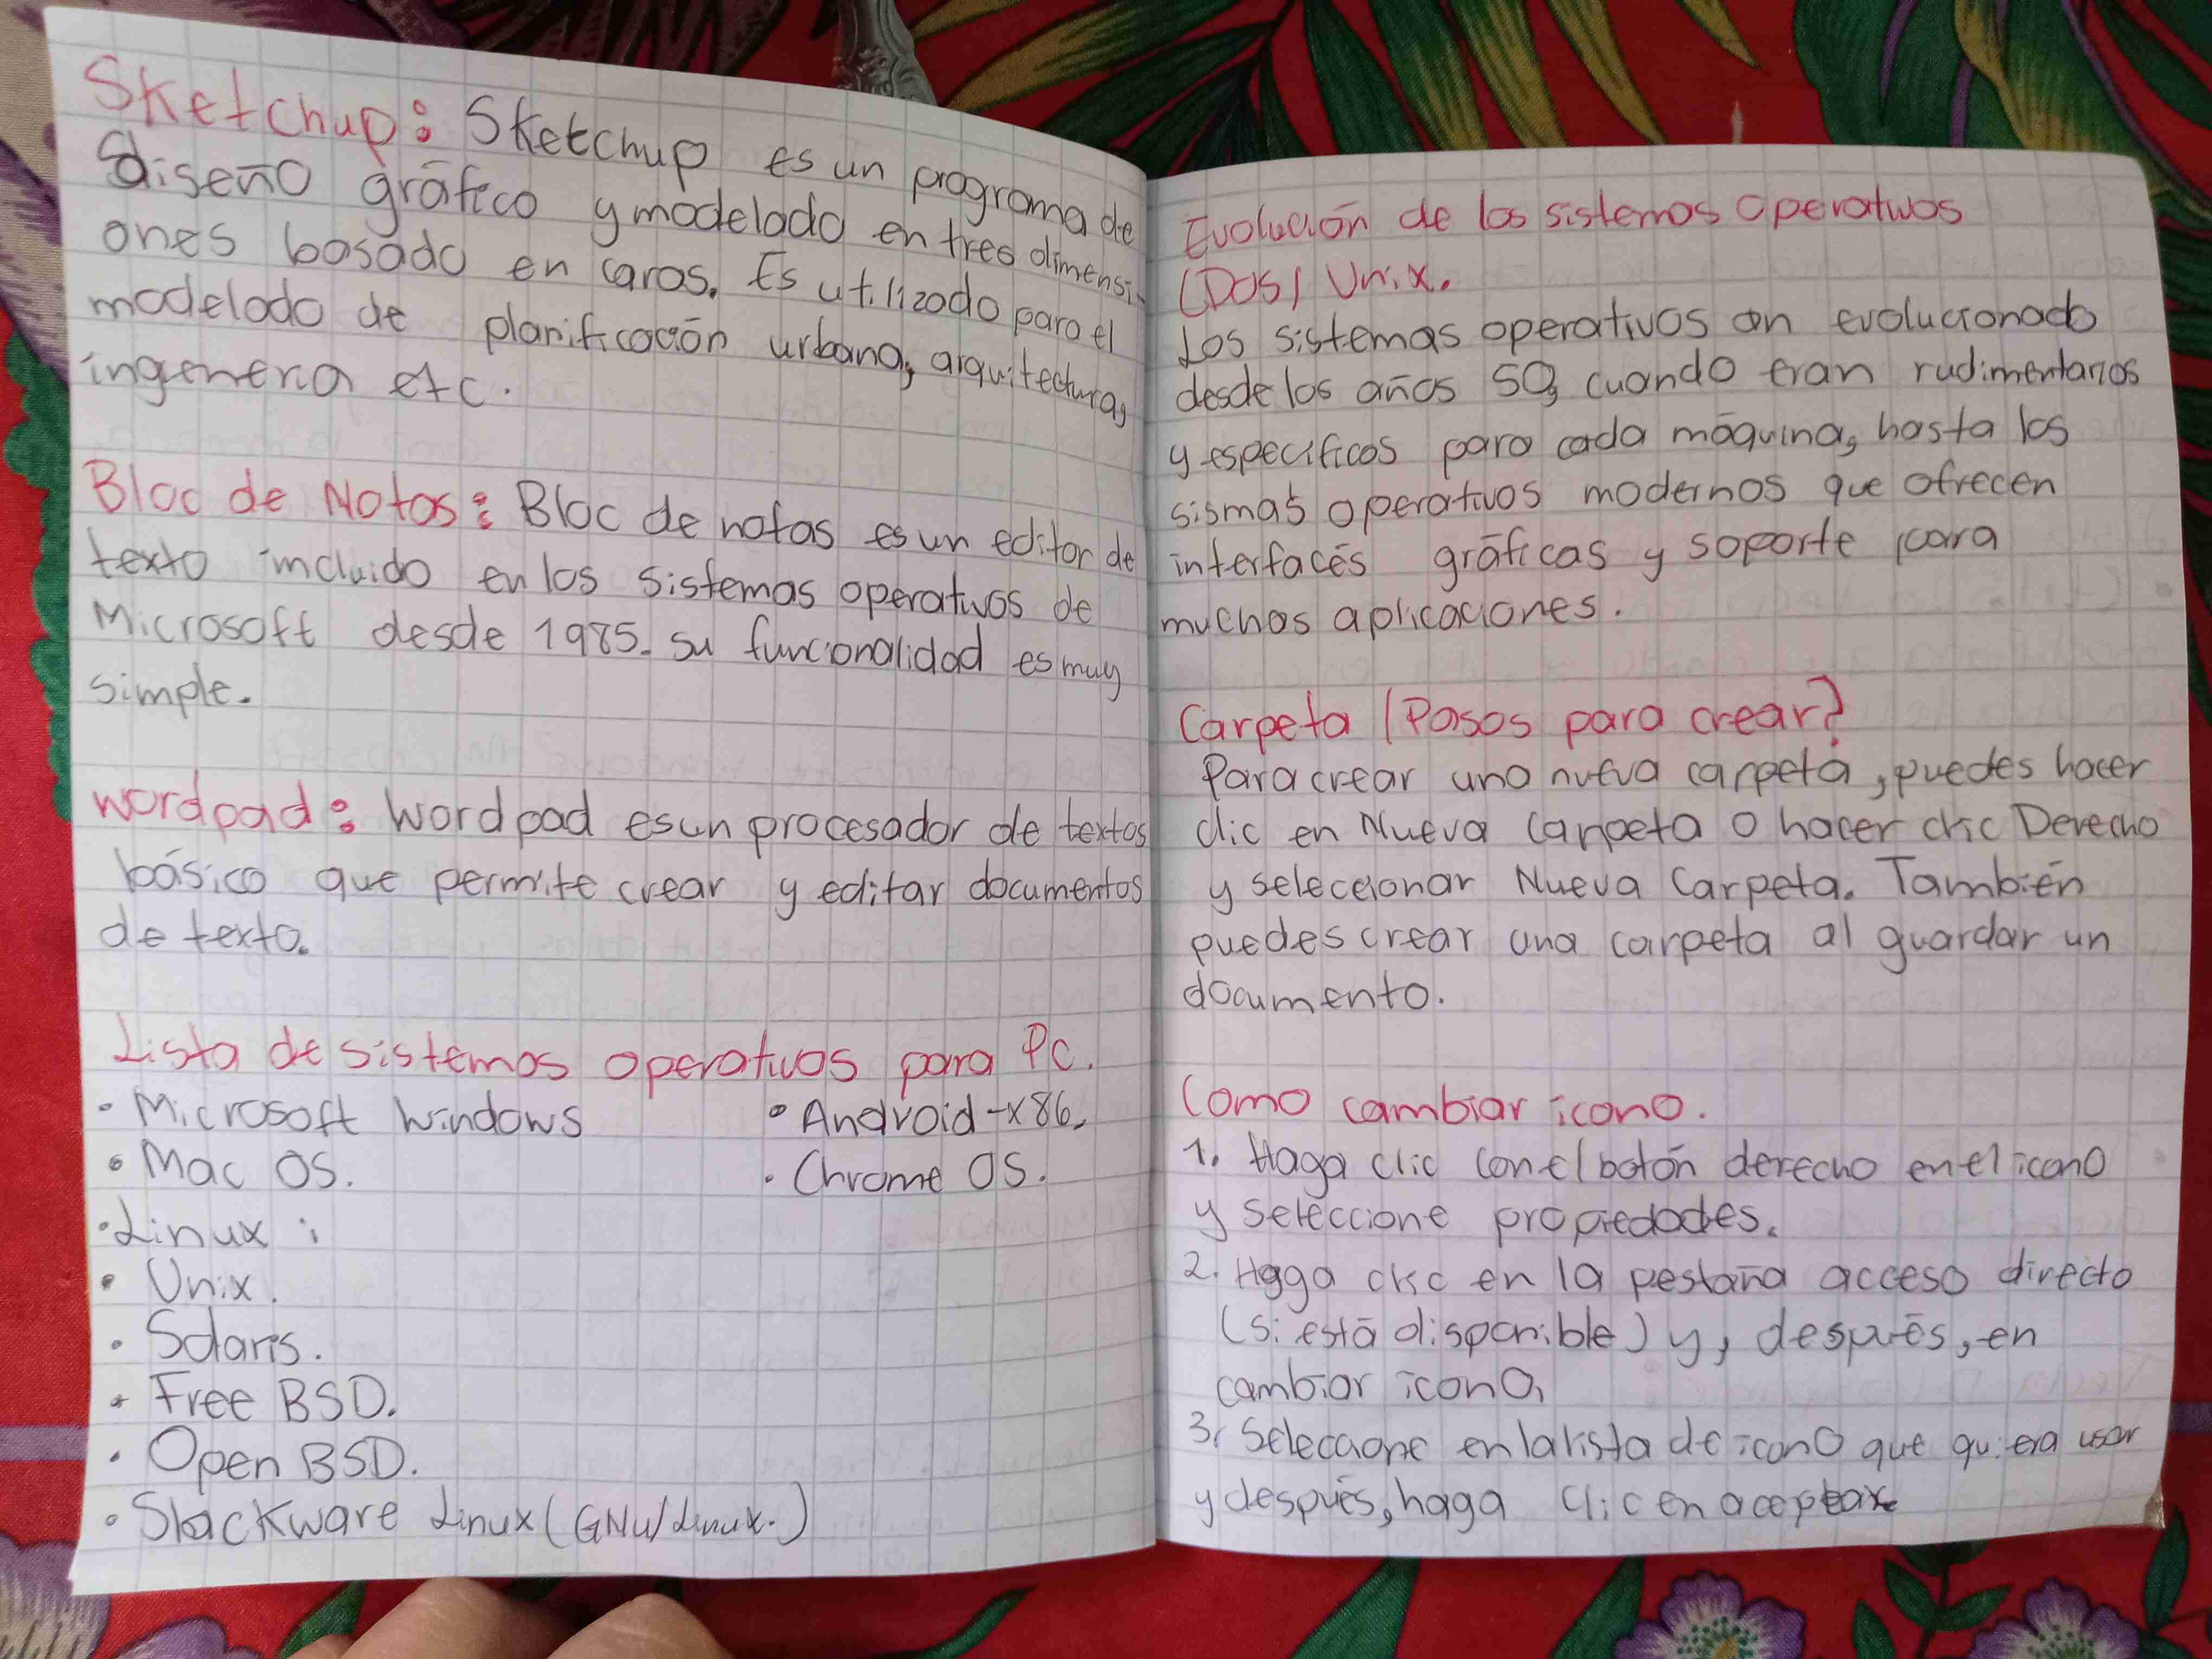 Sketchup: Sketchup es un programa de
diseño gráfico y modelado en tres dimensi-
ones basado en caras. Es utilizado para el
modelado de planificación urbana, arquitectura,
ingeneria etc.
Bloc de Notas: Bloc de notas es un editor de
texto incluido en los sistemas operativos de
Microsoft desde 1985. su funcionalidad es muy
simple.
wordpad: wordpad es un procesador de textos
básico que permite crear y editar documentos
de texto.
Lista de sistemas operativos para PC.
• Microsoft windows
• Mac OS.
• Linux ;
• Unix.
• Solaris.
• Free BSD.
• Open BSD.
• Slackware Linux (GNU/Linux.)
• Android-x86.
• Chrome OS.
Evolución de los sistemas operativos
(DOS/ Unix.
Los sistemas operativos an evolucionado
desde los años 50, cuando eran rudimentarios
y específicos para cada máquina, hasta los
sismas operativos modernos que ofrecen
interfacés gráficas y soporte para
muchas aplicaciones.
Carpeta / Pasos para crear?
Para crear una nueva carpeta, puedes hacer
clic en Nueva Carpeta o hacer clic Derecho
y seleccionar Nueva Carpeta. También
puedes crear una carpeta al guardar un
documento.
Como cambiar icono.
1. Haga clic con el botón derecho en el icono
y seleccione propiedades.
2. Haga clic en la pestaña acceso directo
(si está disponible) y, después, en
cambiar icono,
3. Seleccione en la lista de icono que quiera usar
y después, haga clic en aceptar